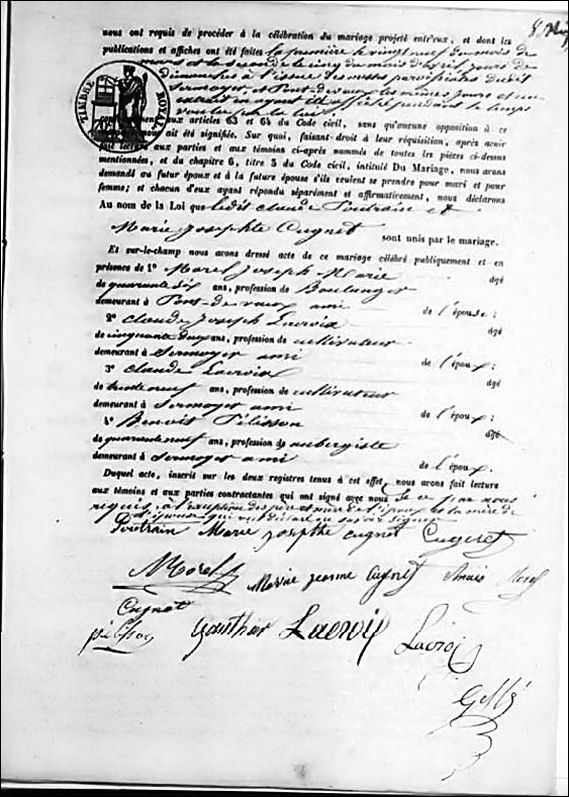 nous ont requis de procéder à la célébration du mariage projeté entr'eux, et dont les
publications et affiches ont été faites la première le vingt neuf du mois de
mars et la seconde le cinq du mois d'avril, jours de
Dimanches à l'issue des messes paroissiales dudit
Sermoyer, et Pont-de-vaux les mêmes jours et un
extrait en ayant été affiché pendant le temps
voulu par la loi.
TIMBRE ROYAL
conformément aux articles 63 et 64 du Code civil, sans qu'aucune opposition à ce
ait été signifiée. Sur quoi, faisant droit à leur réquisition, après avoir
fait lecture aux parties et aux témoins ci-après nommés de toutes les pièces ci-dessus
mentionnées, et du chapitre 6, titre 5 du Code civil, intitulé Du Mariage, nous avons
demandé au futur époux et à la future épouse s'ils veulent se prendre pour mari et pour
femme; et chacun d'eux ayant répondu séparément et affirmativement, nous déclarons
Au nom de la Loi que ledit Claude Poutrain et
Marie Josephte Cugnet
sont unis par le mariage.
Et sur-le-champ nous avons dressé acte de ce mariage célébré publiquement et en
présence de 1° Morel Joseph Marie âgé
de quarante six ans, profession de Boulanger
demeurant à Pont-de-vaux ami de l'épouse;
2° Claude Joseph Lacroix âgé
de cinquante deux ans, profession de cultivateur
demeurant à Sermoyer ami de l'époux;
3° Claude Lacroix âgé
de trente neuf ans, profession de cultivateur
demeurant à Sermoyer ami de l'époux;
4° Benoit Pélisson âgé
de quarante neuf ans, profession de aubergiste
demeurant à Sermoyer ami de l'époux.
Duquel acte, inscrit sur les deux registres tenus à cet effet, nous avons fait lecture
aux témoins et aux parties contractantes qui ont signé avec nous de ce par nous
requis, à l'exception des père et mère de l'époux et la mère de
l'épouse qui ont déclaré ne savoir signer
Poutrain Marie Josepthe Cugnet Cugnet
Morel Marie Jeanne Cugnet Morel
Cugnet
pélisson Gauthier Lacroix Lacroix